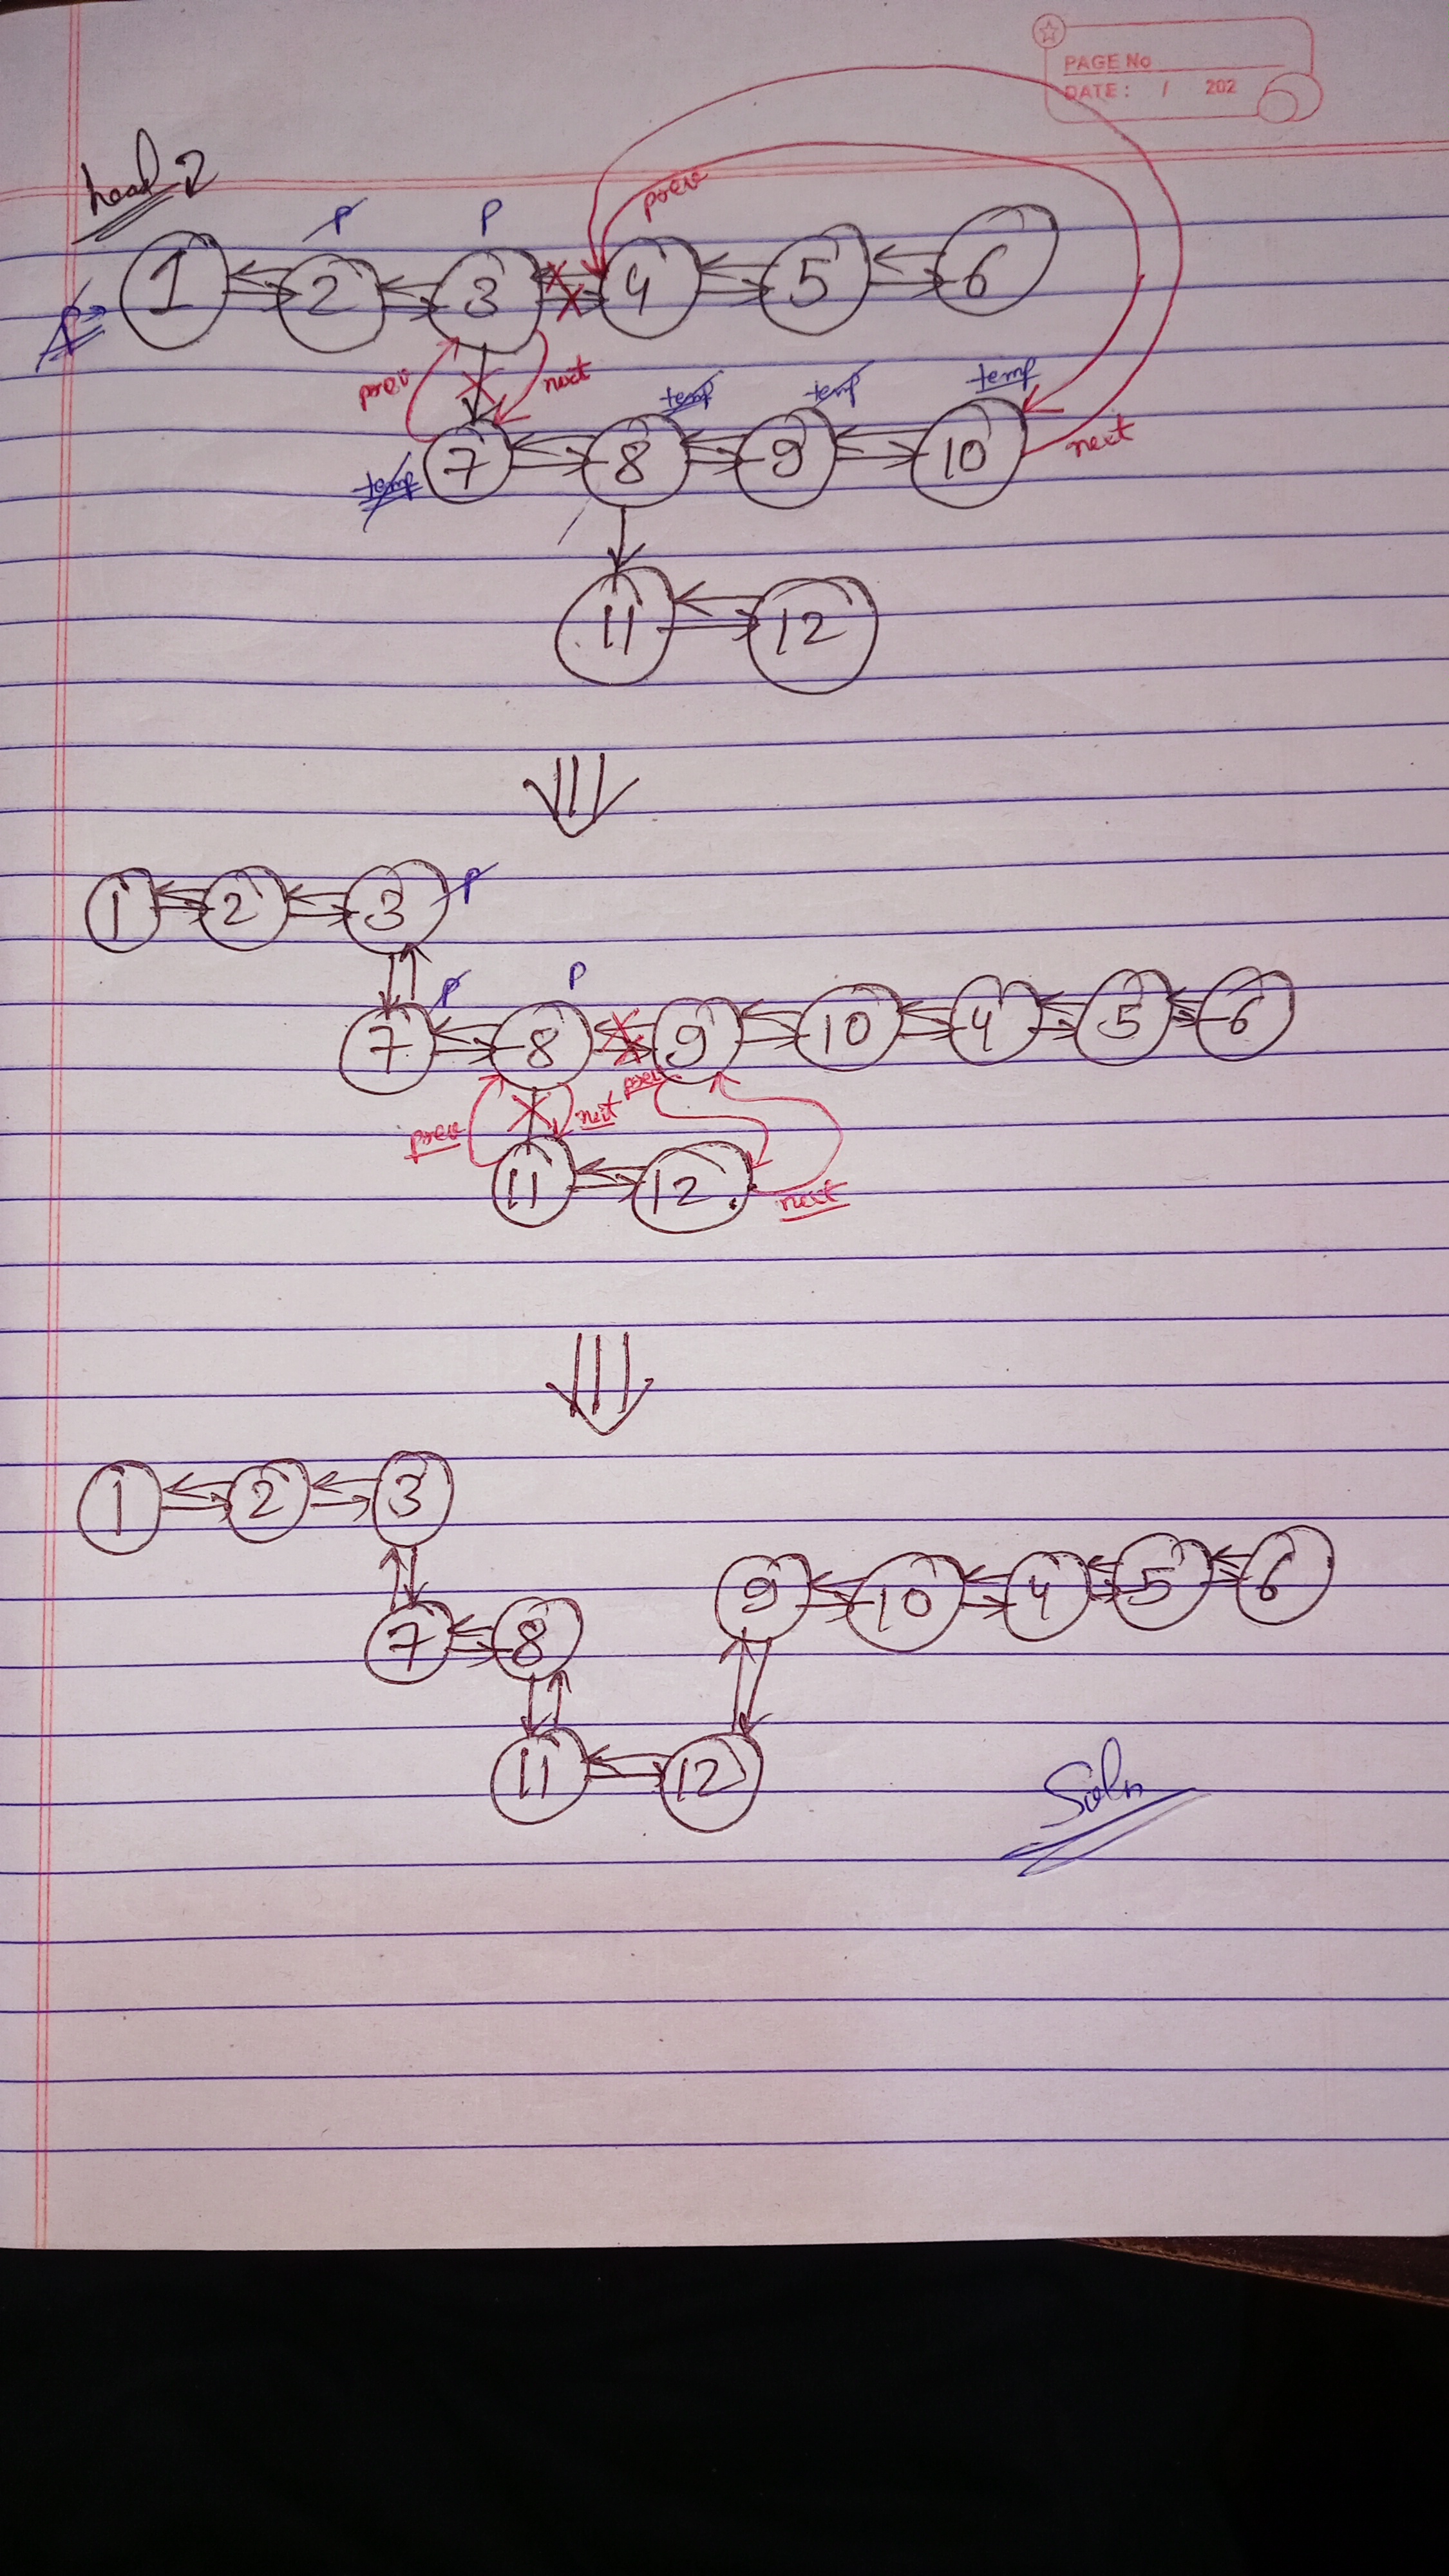 PAGE No
DATE : / 202
head
P P
prev
1 2 3 4 5 6
P
prev next temp temp temp
7 8 9 10 next
temp
11 12
1 2 3 P
P P
7 8 9 10 4 5 6
prev
prev next
11 12 next
1 2 3
9 10 4 5 6
7 8
11 12
Soln